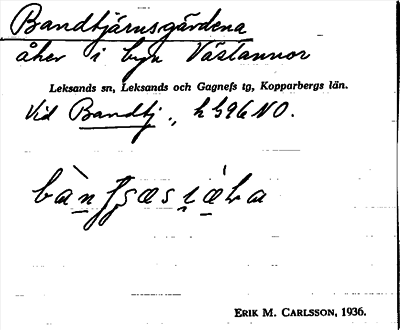 Bandtjärnsgärdena
åker i byn Västannor
Leksands sn, Leksands och Gagnefs tg, Kopparbergs län.
Vid Bandtj., h 596 NO.
ERIK M. CARLSSON, 1936.